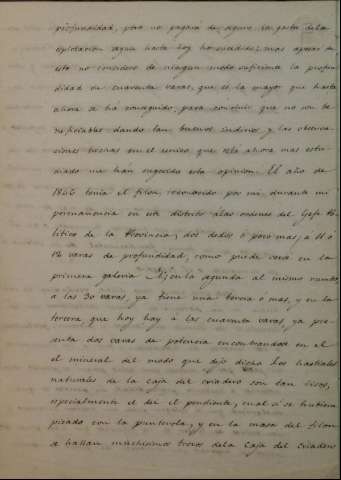 profundidad, pero no pagará de seguro los gastos de la
esplotacion segun hasta hoy ha sucedido; mas apesar de
esto no considero de ningun modo suficiente la profun
didad de cuarenta varas, que es la mayor que hasta
ahora se há conseguido, para concluir que no son be
neficiables dando tan buenos indicios y las observa
ciones hechas en el terreno que está ahora mas estu
diado me han sugerido esta opinion. El año de
1845 tenia el filon, reconocido por mi durante mi
permanencia en este distrito á las ordenes del Gefe Po
litico de la Provincia, dos dedos ó poco mas, a 11 ó
12 varas de profundidad, como puede verse en la
primera galeria en la segunda al mismo rumbo
a las 30 varas, ya tiene una tercia ó mas, y en la
tercera que hoy hay á las cuarenta varas, ya pre
senta dos varas de potencia encontrandose en él
el mineral del modo que dejo dicho. Los hastiales
naturales de la caja del criadero son tan lisos,
especialmente el del pendiente, cual si se hubiera
picado con la punterola, y en la masa del filon
se hallan muchisimos trozos dela caja del criadero